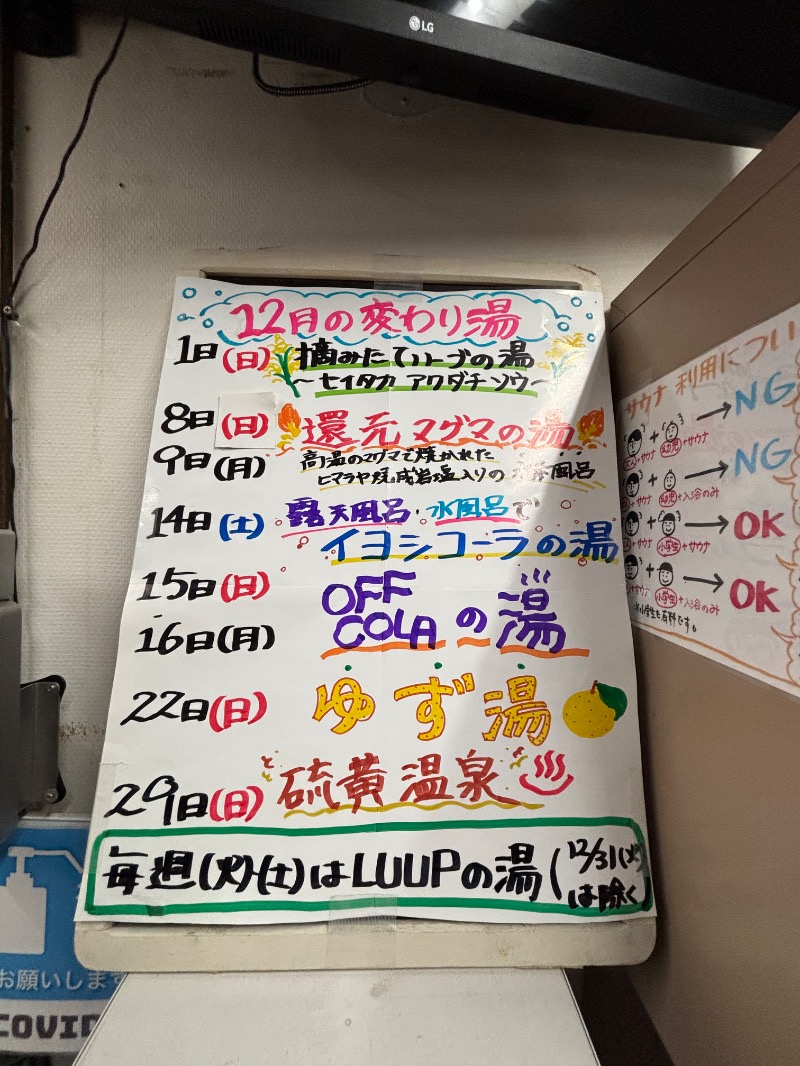 LG
12月の変わり湯
1日(日) 摘みたてハーブの湯
〜セイタカアワダチソウ〜
8日(日) 還元マグマの湯
9日(月) 高温のマグマで焼かれた
ヒマラヤ焼成岩塩入りの 風呂
14日(土) 露天風呂・水風呂で
イヨシコーラの湯
15日(日) OFF
COLAの湯
16日(月)
22日(日) ゆず湯
29日(日) 硫黄温泉
毎週(火)(土)はLUUPの湯(12/31(火)
は除く)
サウナ利用につい
+サウナ → NG
+入浴のみ → NG
小学生+サウナ → OK
小学生+入浴のみ → OK
お願いします
COVID